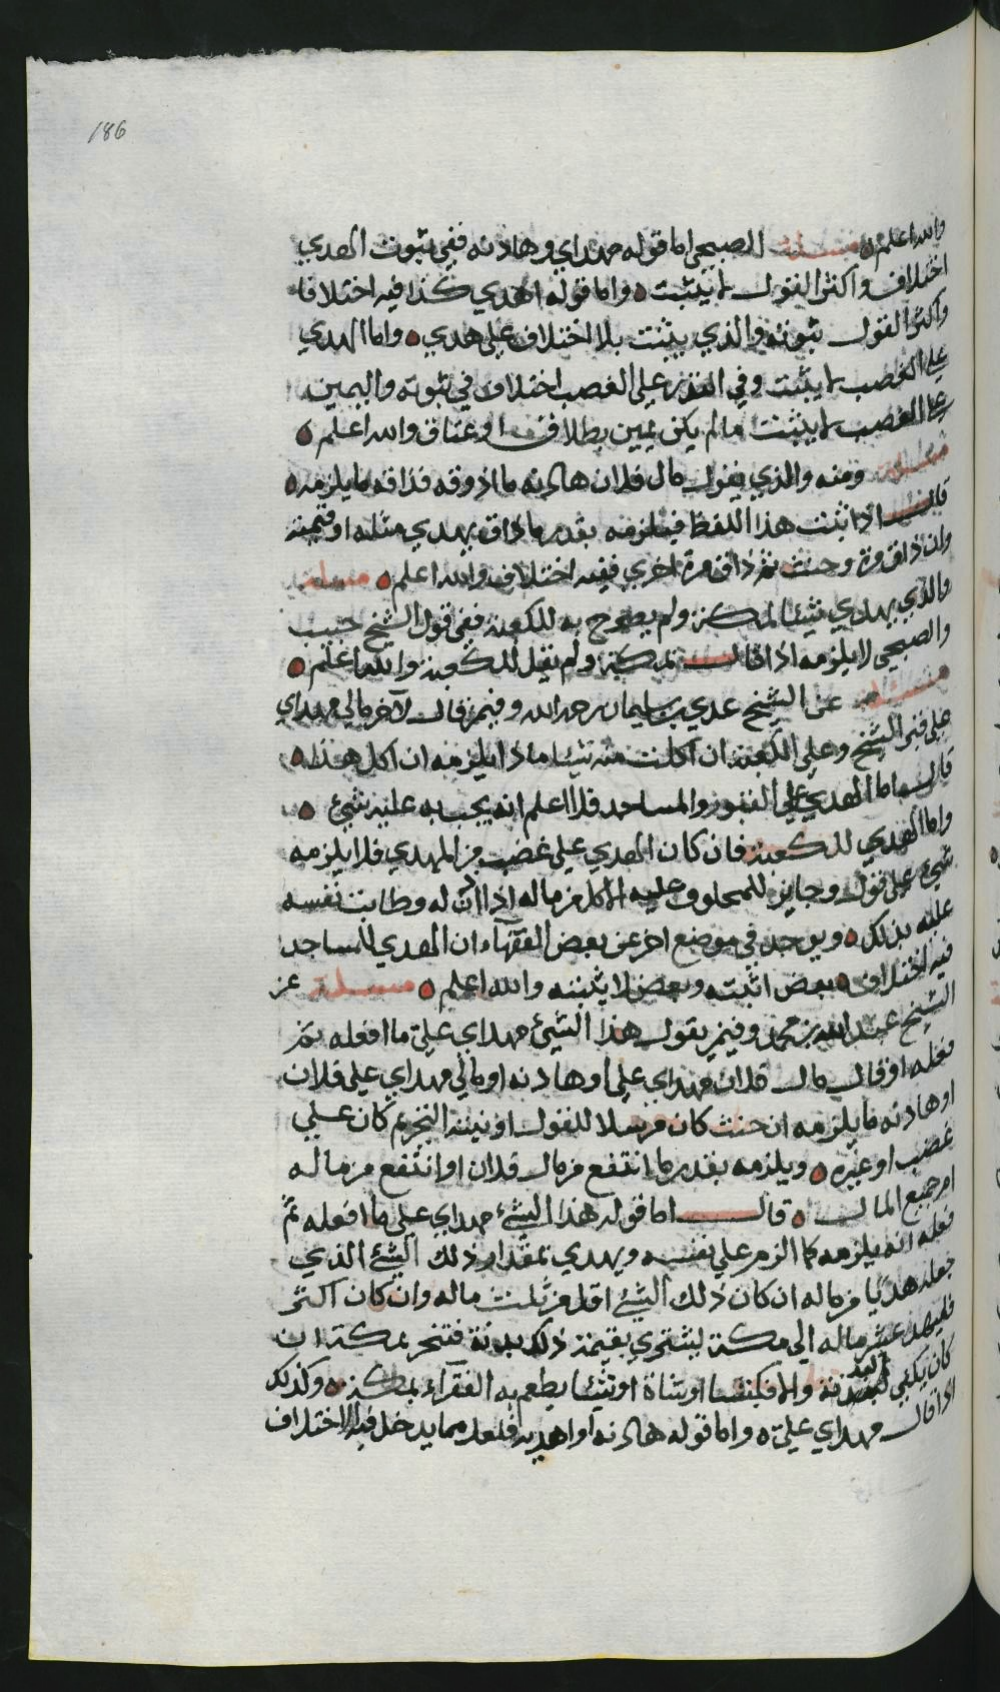 186
والله اعلم مسئلة الصبحي اما قوله مهداي وهادنه ففي ثبوت الهدي
اختلاف واكثر القول لا يثبت واما قوله اهدي كذا فيه اختلافا
واكثر القول ثبوته والذي يثبت بلا اختلاف علي هدي واما الهدي
علي الغصب لا يثبت وفي النذر علي الغصب اختلاف في ثبوته واليمين
علي الغصب لا يثبت مالم يكن يمين بطلاق او عتاق والله اعلم
مسئلة ومنه والذي يقول مال فلان هادنه ما اذوقه فذاقه ما يلزمه
قال اذا ثبت هذا اللفظ فيلزمه بقدر ما ذاق يهدي مثله او قيمته
وان ذاق مرة وحنث ثم ذاق مرة اخري ففيه اختلاف والله اعلم مسئلة
والذي يهدي شيئا لمكة ولم يصرح به للكعبة ففي قول الشيخ حبيب
والصبحي لا يلزمه اذا قال لمكة ولم يقل للكعبة والله اعلم
مسئلة عن الشيخ عدي بن سليمان رحمه الله وفيمن قال لآخر مالي مهداي
علي قبر الشيخ وعلي الكعبة ان اكلت منه شيئا ماذا يلزمه ان اكل هذا
قال اما الهدي علي القبور والمساجد فلا اعلم انه يجب به عليه شيئ
واما الهدي للكعبة فان كان الهدي علي غضب من المهدي فلا يلزمه
شيء علي قول وجايز للمحلوف عليه الاكل من ماله اذا اذن له وطابت نفسه
عليه بذلك ويوجد في موضع اخر عن بعض الفقهاء ان الهدي للمساجد
فيه اختلاف بعض اثبته وبعض لا يثبته والله اعلم مسئلة عن
الشيخ عبد الله بن محمد وفيمن يقول هذا الشيئ مهداي علي ما افعله ثم
فعله او قال مال فلان مهداي علي او هادنه او مالي مهداي علي فلان
او هادنه ما يلزمه ان حنث كان مرسلا للقول او نيته التحريم كان علي
غضب او غيره ويلزمه بقدر ما انتفع من مال فلان او انتفع من ماله
ام جميع المال قال اما قوله هذا الشيء مهداي علي ما افعله ثم
فعله انه يلزمه ما الزم علي نفسه ويهدي بمقدار ذلك الشيئ الذي
جعله هديا من ماله ان كان ذلك الشيئ اقل من ثلث ماله وان كان اكثر
فليهد عشر ماله الي مكة ليشتري بقيمة ذلك بدنة فتنحر بمكة ان
كان يكفي لبدنة والا فكبشا او شاة او شيئا يطعم به الفقراء بمكة وكذلك
اذا قال مهداي علي واما قوله هادنه او اهديه فلعله مما يدخل فيه الاختلاف